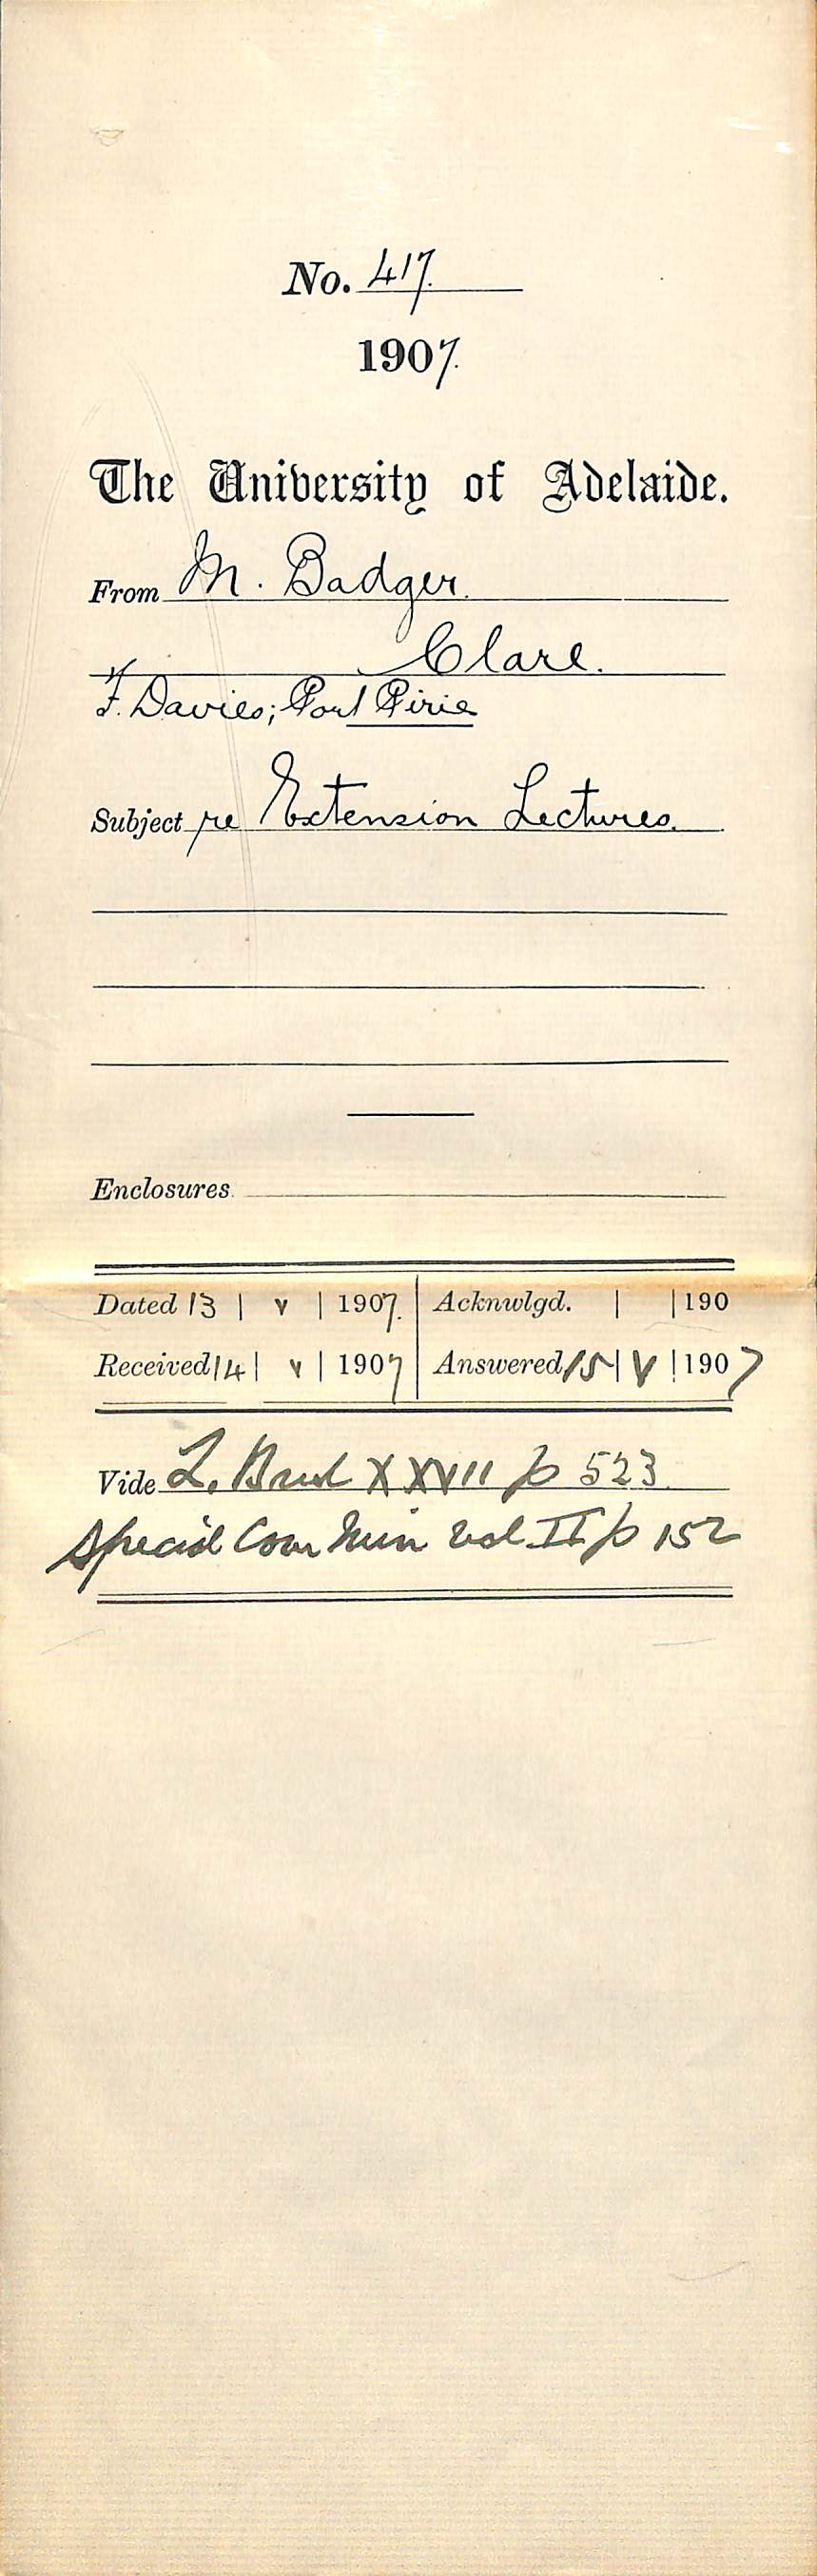 No. 417.
1907.
The University of Adelaide.
From M. Badger.
Clare.
F. Davies; Port Pirie
Subject re Extension Lectures.
Enclosures
Dated 13 | V | 1907. | Acknwlgd. | | 190
Received 14 | V | 1907 | Answered 15 | V | 1907
Vide L. XXVII p 523
Special Com Min vol II p 152